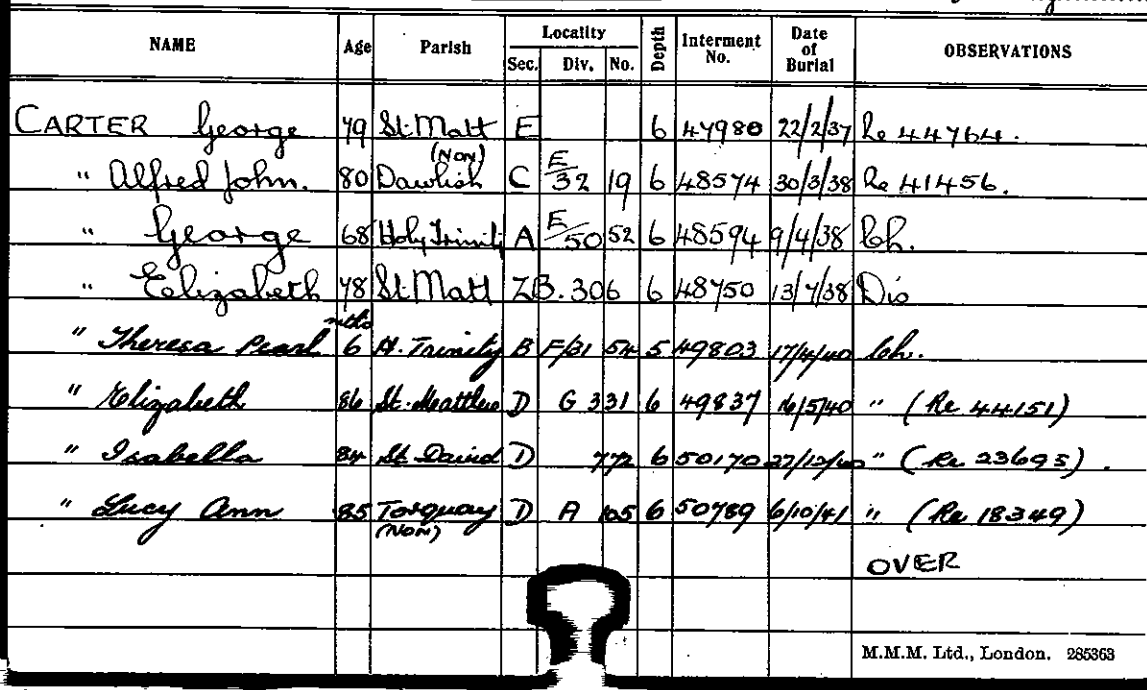 NAME Age Parish Locality Depth Interment No. Date of Burial OBSERVATIONS
Sec. Div. No.
CARTER George 79 St. Matt E 6 47980 22/2/37 Re 44764.
(NON)
" Alfred John. 80 Dawlish C E/32 19 6 48574 30/3/38 Re 41456.
" George 68 Holy Trinity A E/50 52 6 48594 9/4/38 Ch.
" Elizabeth 78 St. Matt ZB. 306 6 48750 13/7/38 Dis
mths
" Theresa Pearl 6 H. Trinity B F/31 54 5 49803 17/4/40 Ch.
" Elizabeth 86 St. Matthew D G 331 6 49837 16/5/40 " (Re 44151)
" Isabella 84 St David D 772 6 50170 27/12/40 " (Re 23695).
" Lucy Ann 85 Torquay D A 105 6 50789 6/10/41 " (Re 18349)
(NON)
OVER
M.M.M. Ltd., London. 285363